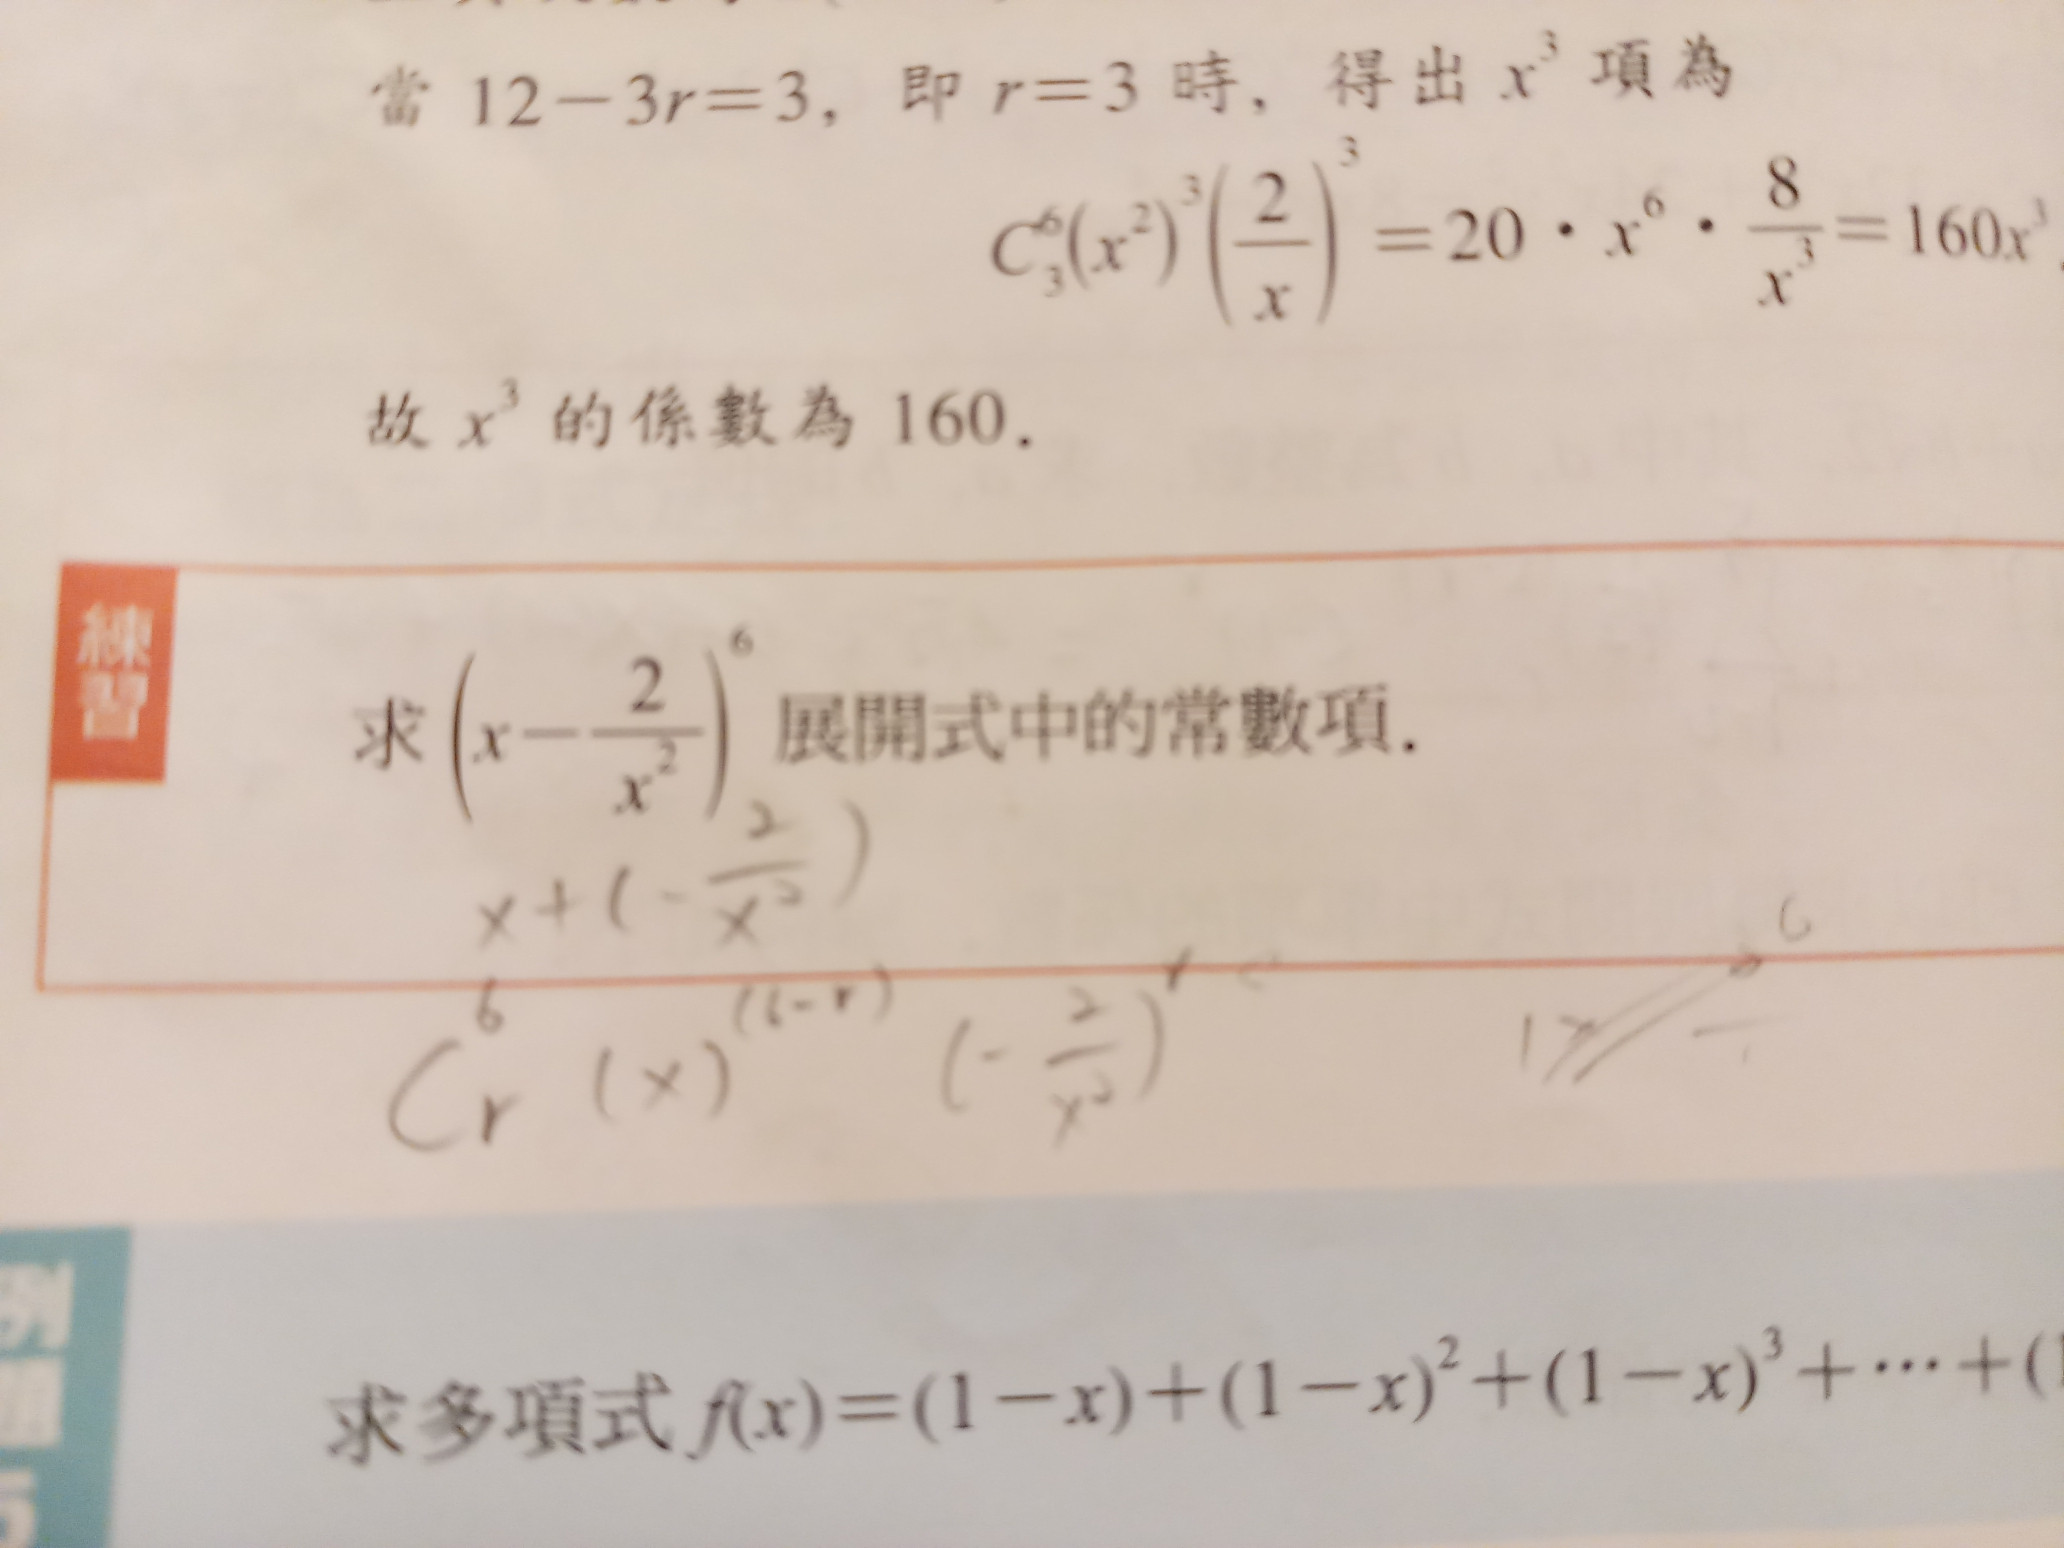 當 12－3r＝3, 即 r＝3 時, 得出 x³ 項為
C₃⁶(x²)³(2/x)³＝20·x⁶·8/x³＝160x³.
故 x³ 的係數為 160.
練習
求(x－2/x²)⁶展開式中的常數項.
x+(-2/x²)
C⁶r (x)⁽⁶⁻ʳ⁾ (-2/x²)ʳ
6
例題5
求多項式 f(x)＝(1－x)＋(1－x)²＋(1－x)³＋⋯＋(1